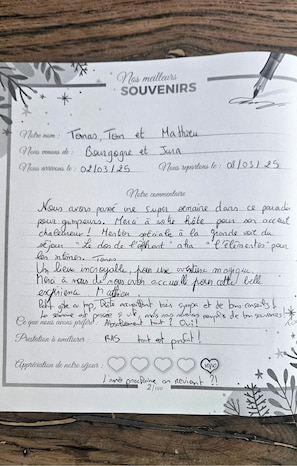 Nos meilleurs
SOUVENIRS
Notre nom : Tomas, Tom et Mathieu
Nous venons de : Bourgogne et Jura
Nous arrivons le : 02/03/25 Nous repartons le : 08/03/25
Notre commentaire
Nous avons passé une super semaine dans ce paradis
pour grimpeurs. Merci à notre hôte pour son accueil
chaleureux ! Mention spéciale à la grande voie du
séjour "Le dos de l'éléphant" aka "l'Elémentor" pour
les intimes. Tomas
Un lieu incroyable, pour une aventure magique.
Merci à vous de nous avoir accueilli pour cette belle
expérience. Mathieu
gîte au top, accueillant bien sympa et de bons conseils !
La semaine est passée si vite, mais nos
Ce que nous avons préféré : Absolument tout ? Oui !
Prestation à améliorer : RAS tout est parfait !
Appréciation de notre séjour :
L'année prochaine on revient ?!
2/100